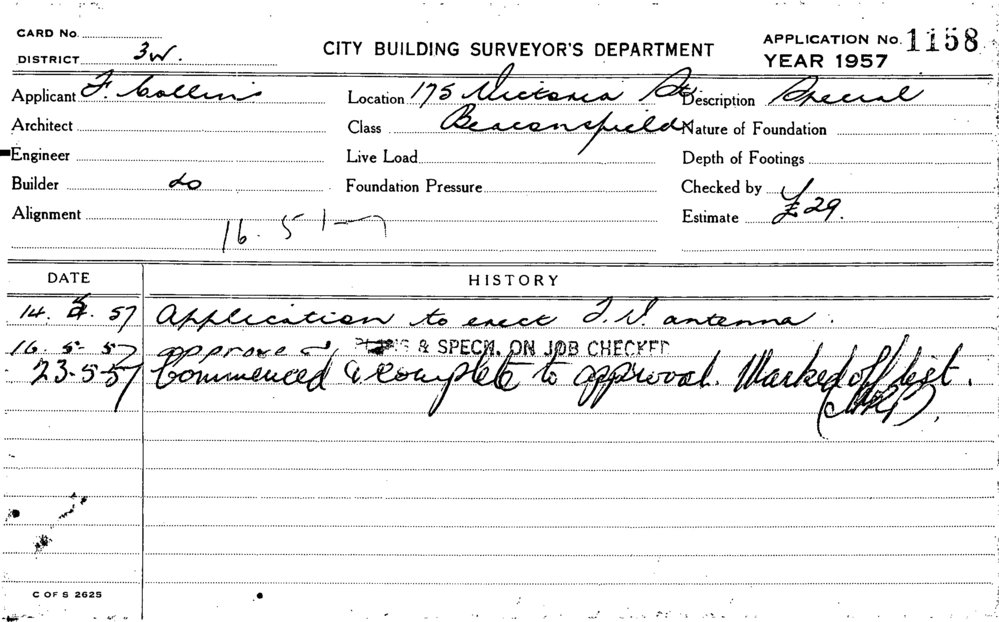 CARD No.
DISTRICT 3W.
CITY BUILDING SURVEYOR'S DEPARTMENT
APPLICATION No. 1158
YEAR 1957
Applicant F. Collins Location 175 Victoria St Description Special
Architect Class Beaconsfield Nature of Foundation
Engineer Live Load Depth of Footings
Builder do Foundation Pressure Checked by
Alignment Estimate £29.
16. 5
DATE HISTORY
14. 5. 57 Application to erect T.V. antenna.
16. 5. 57 approved PLANS & SPECN. ON JOB CHECKED
23-5-57 Commenced & complete to approval. Marked off list.
C OF S 2625